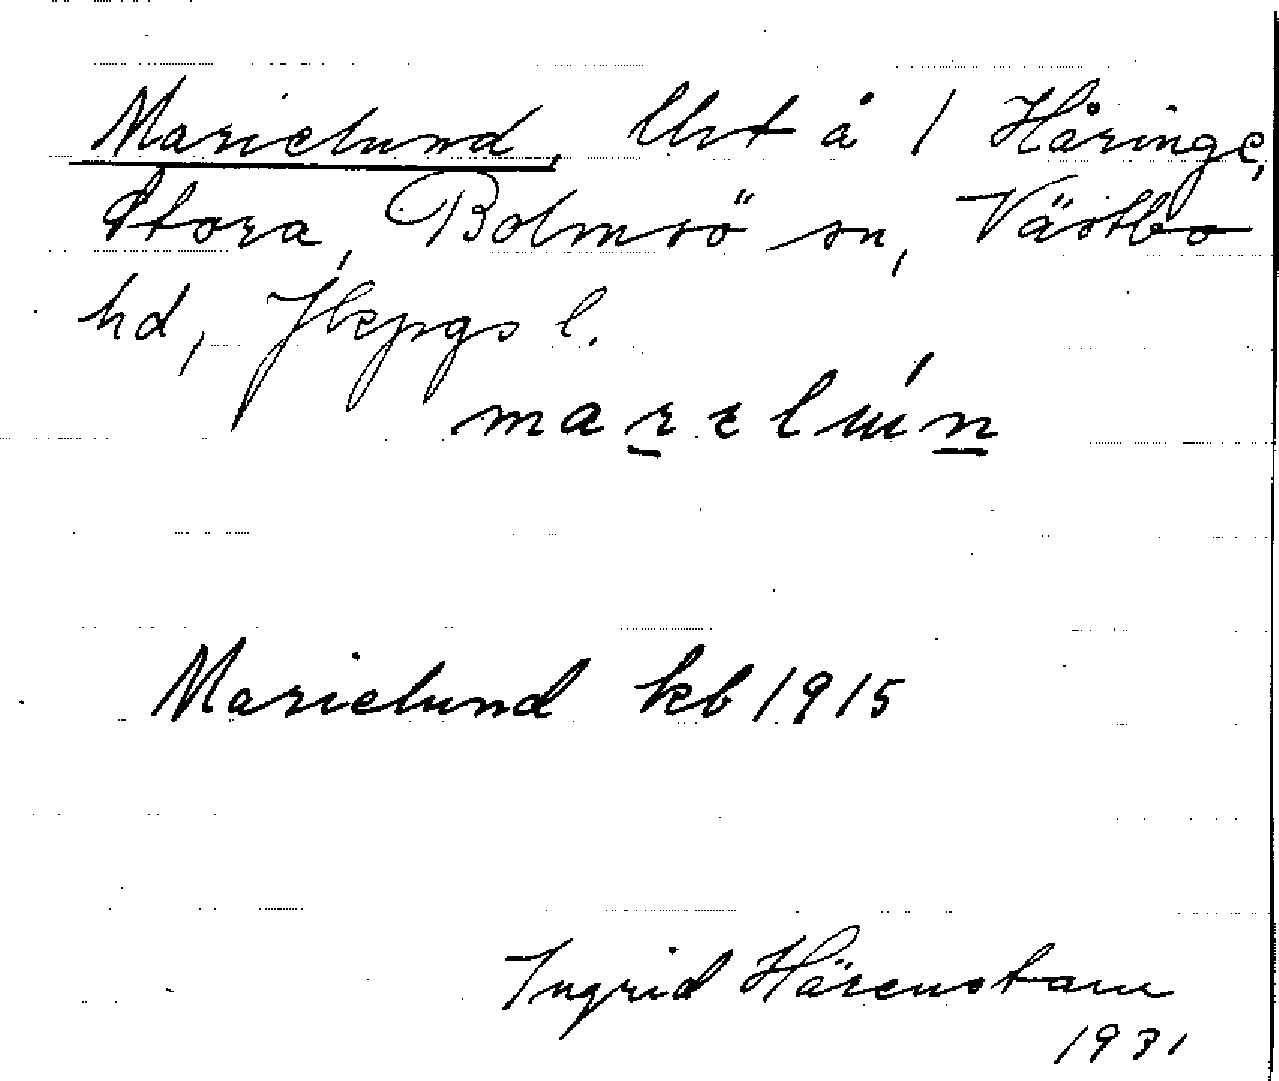 Marielund, lht å 1 Håringe,
Stora, Bolmsö sn, Västbo
hd, Jkpgs l.
Marielund kb 1915
Ingrid Härenstam
1931